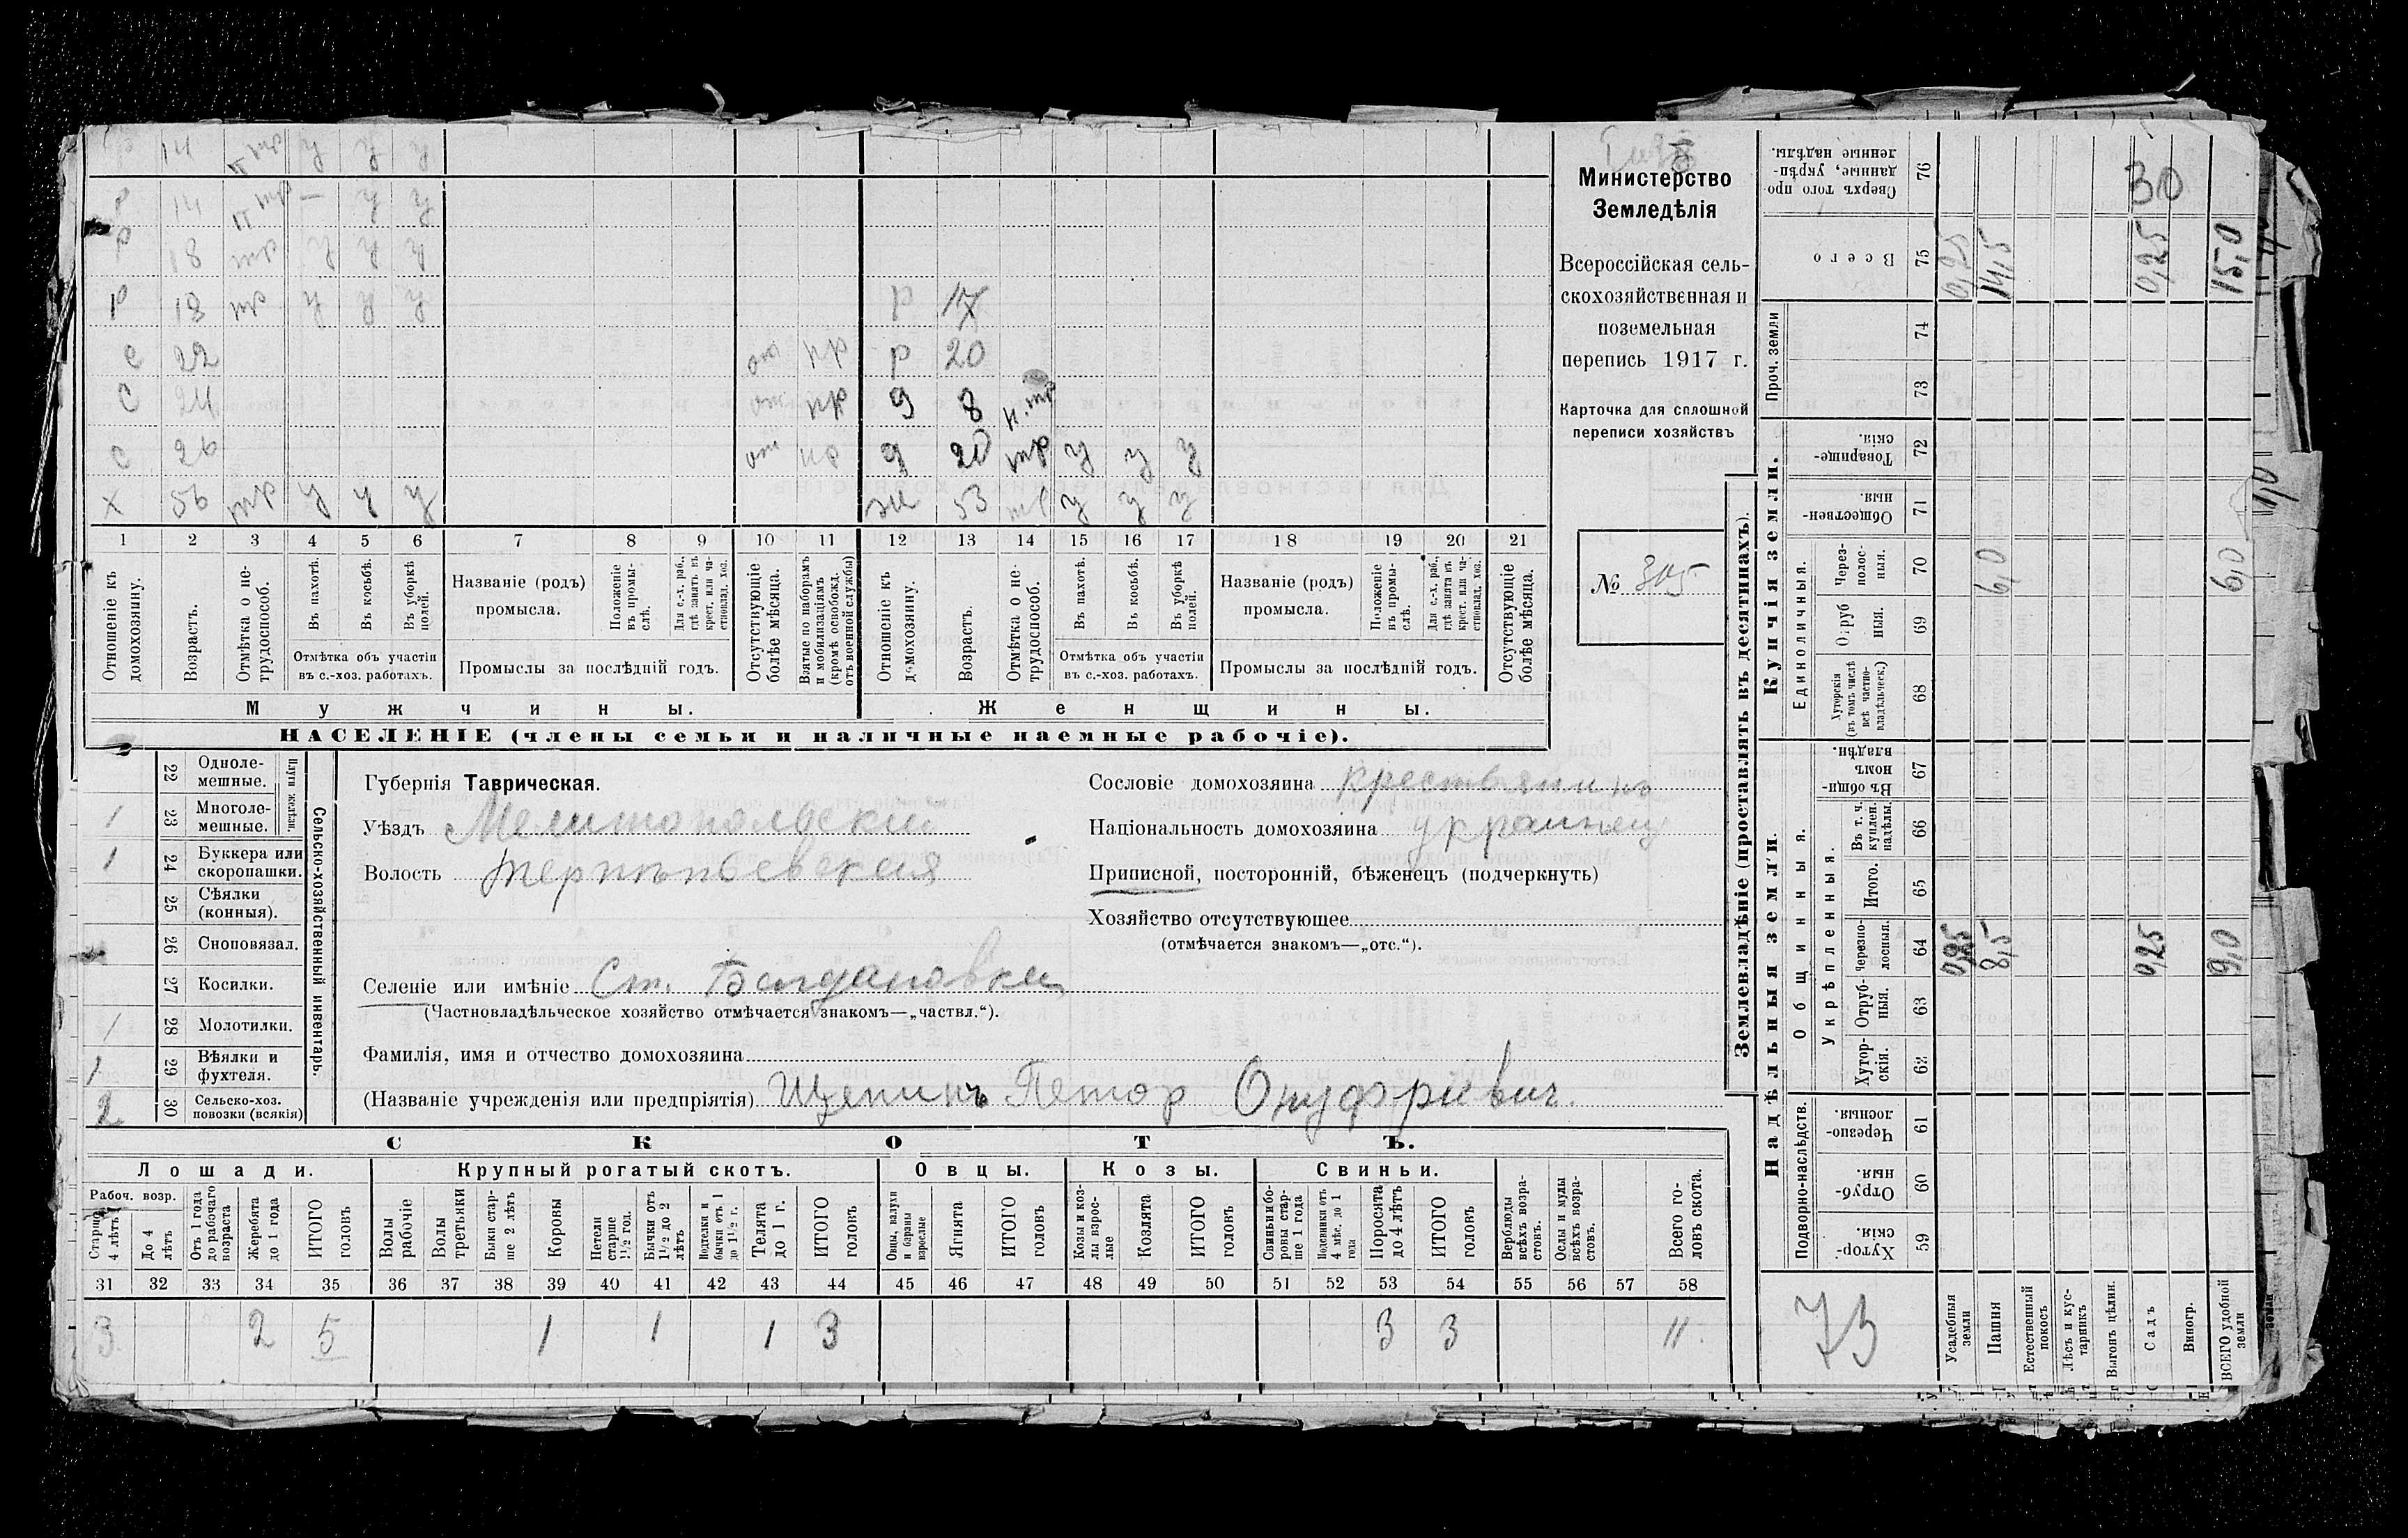 р 14 у у у
р 14 — у у
р 18 тр у у у
р 18 тр у у у р 17
с 22 от пр р 20
с 24 от пр д 8 н.тр
с 26 от пр д 20 тр у у у
х 56 тр у у у ж 53 у у у
1 2 3 4 5 6 7 8 9 10 11 12 13 14 15 16 17 18 19 20 21
Отношеніе къ домохозяину.
Возрастъ.
Отмѣтка о нетрудоспособ.
Въ пахотѣ.
Въ косьбѣ.
Въ уборкѣ полей.
Отмѣтка объ участіи въ с.-хоз. работахъ.
Названіе (родъ) промысла.
Положеніе въ промыслѣ.
Для с.-х. раб., гдѣ занятъ въ крест. или частновлад. хоз.
Промыслы за послѣдній годъ.
Отсутствующіе болѣе мѣсяца.
Взятые по наборамъ и мобилизаціямъ (кромѣ освобожд. отъ военной службы)
Отношеніе къ домохозяину.
Возрастъ.
Отмѣтка о нетрудоспособ.
Въ пахотѣ.
Въ косьбѣ.
Въ уборкѣ полей.
Отмѣтка объ участіи въ с.-хоз. работахъ.
Названіе (родъ) промысла.
Положеніе въ промыслѣ.
Для с.-х. раб., гдѣ занята въ крест. или частновлад. хоз.
Промыслы за послѣдній годъ.
Отсутствующіе болѣе мѣсяца.
Мужчины. Женщины.
НАСЕЛЕНІЕ (члены семьи и наличные наемные рабочіе).
Министерство
Земледѣлія
Всероссійская сель-
скохозяйственная и
поземельная
перепись 1917 г.
Карточка для сплошной
переписи хозяйствъ
№ 305
Сельско-хозяйственный инвентарь.
Плуги желѣзн.
22 Одноле-мешные.
1 23 Многоле-мешные.
1 24 Буккера или скоропашки.
25 Сѣялки (конныя).
26 Сноповязал.
27 Косилки.
1 28 Молотилки.
1 29 Вѣялки и фухтеля.
2 30 Сельско-хоз. повозки (всякія)
Губернія Таврическая.
Уѣздъ Мелитопольскій
Волость Терпѣньевская
Селеніе или имѣніе Ст. Богдановка
(Частновладѣльческое хозяйство отмѣчается знакомъ—„частвл.“).
Фамилія, имя и отчество домохозяина
(Названіе учрежденія или предпріятія) Щепинъ Петор Онуфріевич.
Сословіе домохозяина крестьянинъ
Національность домохозяина украинец
Приписной, посторонній, бѣженецъ (подчеркнуть)
Хозяйство отсутствующее
(отмѣчается знакомъ—„отс.“).
СКОТЪ.
Лошади. Крупный рогатый скотъ. Овцы. Козы. Свиньи.
Рабоч. возр.
Старше 4 лѣтъ
До 4 лѣтъ
Отъ 1 года до рабочаго возраста
Жеребята до 1 года
ИТОГО головъ
Волы рабочіе
Волы третьяки
Быки старше 2 лѣтъ
Коровы
Нетели старше 1½ год.
Бычки отъ 1½ до 2 лѣтъ
Подтелки и бычки отъ 1 до 1½ г.
Телята до 1 г.
ИТОГО головъ
Овцы, валухи и бараны взрослые
Ягнята
ИТОГО головъ
Козы и козлы взрослые
Козлята
ИТОГО головъ
Свиньи и боровы старше 1 года
Подсвинки отъ 4 мѣс. до 1 года
Поросята до 4 лѣтъ
ИТОГО головъ
Верблюды всѣхъ возрастовъ.
Ослы и мулы всѣхъ возрастовъ.
Всего головъ скота.
31 32 33 34 35 36 37 38 39 40 41 42 43 44 45 46 47 48 49 50 51 52 53 54 55 56 57 58
3 2 5 1 1 1 3 3 3 11.
Землевладѣніе (проставлять въ десятинахъ).
Сверхъ того проданные, укрѣпленные надѣлы. 76 30
Всего 75 0,25 14,5 0,25 15,0
Проч. земли 74
73
Купчія земли.
Товарищескія. 72
Общественныя. 71
Единоличныя.
Черезполосныя. 70 6,0 6,0
Отрубныя. 69
Хуторскія (въ томъ числѣ всѣ частновладѣльческ.) 68
Надѣльныя земли.
Общинныя.
Въ общинномъ владѣн. 67
Укрѣпленныя.
Въ т. ч. куплен. надѣлы. 66
Итого. 65
Черезполосныя. 64 0,25 8,5 0,25 9,0
Отрубныя. 63
Хуторскія. 62
Подворно-наслѣдств.
Черезполосныя. 61
Отрубныя. 60
Хуторскія. 59
73
Усадебныя земли
Пашня
Естественный покосъ
Лѣсъ и кустарникъ
Выгонъ цѣлин.
Садъ
Виногр.
ВСЕГО удобной земли